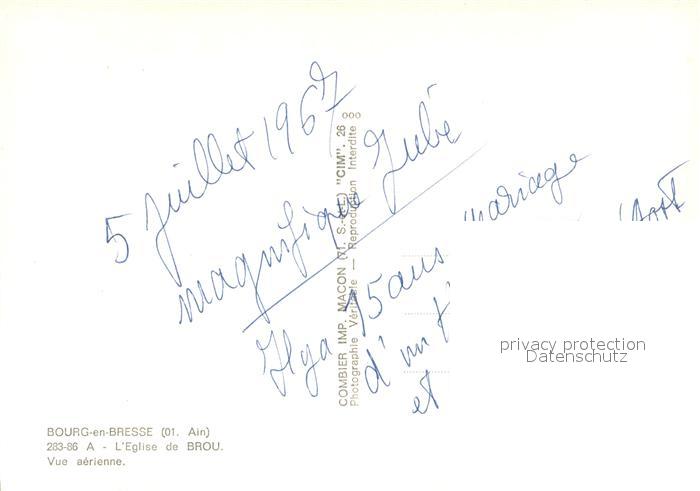 5 juillet 1967
magnifique Jubé
Il y a 75 ans mariage
d'un
et
COMBIER IMP. MACON (71. S.-et-L.) "CIM". 26 000
Photographie Véritable — Reproduction Interdite
privacy protection
Datenschutz
BOURG-en-BRESSE (01. Ain)
283-86 A - L'Eglise de BROU.
Vue aérienne.